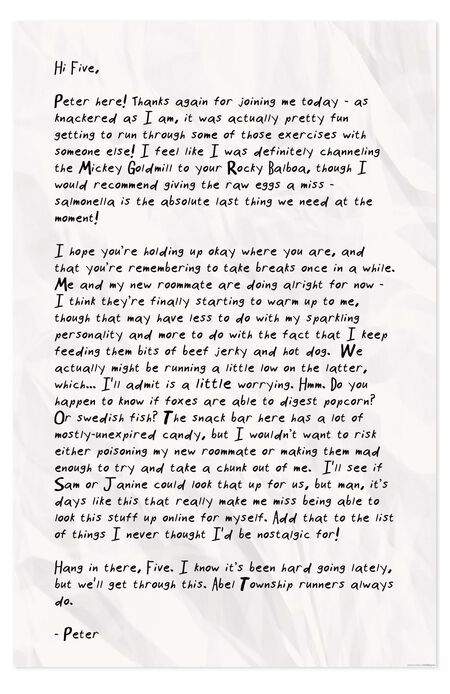 Hi Five,
Peter here! Thanks again for joining me today - as
knackered as I am, it was actually pretty fun
getting to run through some of those exercises with
someone else! I feel like I was definitely channeling
the Mickey Goldmill to your Rocky Balboa, though I
would recommend giving the raw eggs a miss -
salmonella is the absolute last thing we need at the
moment!
I hope you're holding up okay where you are, and
that you're remembering to take breaks once in a while.
Me and my new roommate are doing alright for now -
I think they're finally starting to warm up to me,
though that may have less to do with my sparkling
personality and more to do with the fact that I keep
feeding them bits of beef jerky and hot dog. We
actually might be running a little low on the latter,
which... I'll admit is a little worrying. Hmm. Do you
happen to know if foxes are able to digest popcorn?
Or swedish fish? The snack bar here has a lot of
mostly-unexpired candy, but I wouldn't want to risk
either poisoning my new roommate or making them mad
enough to try and take a chunk out of me. I'll see if
Sam or Janine could look that up for us, but man, it's
days like this that really make me miss being able to
look this stuff up online for myself. Add that to the list
of things I never thought I'd be nostalgic for!
Hang in there, Five. I know it's been hard going lately,
but we'll get through this. Abel Township runners always
do.
- Peter